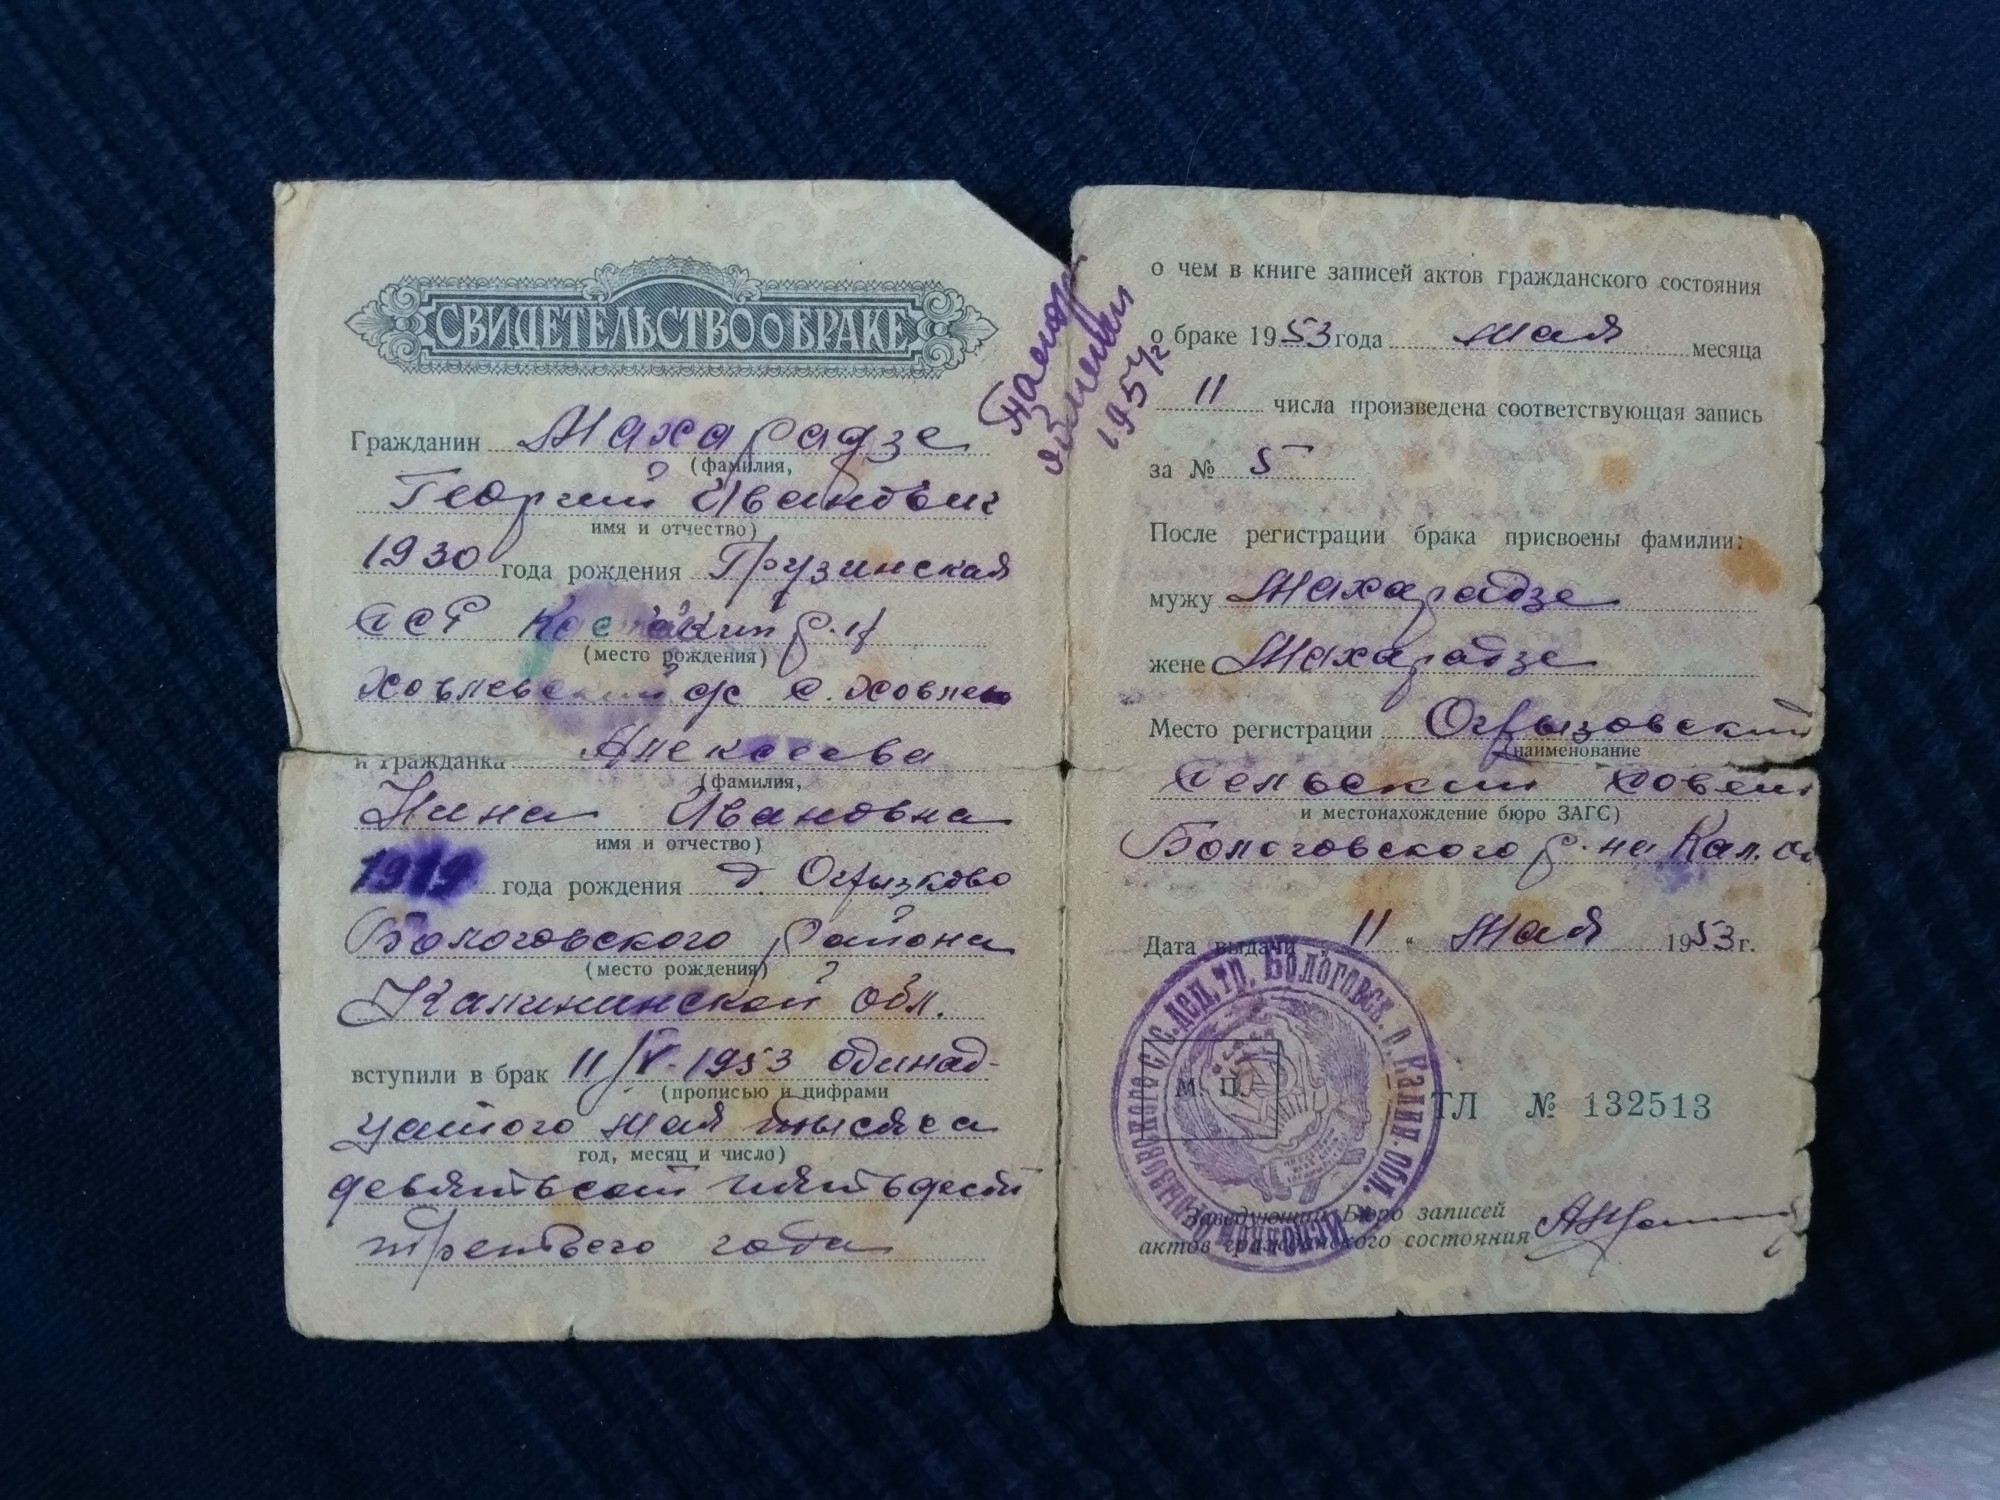 СВИДЕТЕЛЬСТВО О БРАКЕ
Гражданин Махарадзе
(фамилия,
Георгий Иванович
имя и отчество)
1930 года рождения Грузинская
ССР р-н
(место рождения)
с. Ховле
и гражданка Алексеева
(фамилия,
Нина Ивановна
имя и отчество)
года рождения д. Огрызково
Бологовского района
(место рождения)
Калининской обл.
вступили в брак 11/V-1953 одинад-
(прописью и цифрами
цатого мая тысяча
год, месяц и число)
девятьсот пятьдесят
третьего года
1954 г
о чем в книге записей актов гражданского состояния
о браке 1953 года мая месяца
11 числа произведена соответствующая запись
за № 5
После регистрации брака присвоены фамилии:
мужу Махарадзе
жене Махарадзе
Место регистрации Огрызовский
(наименование
Сельский Совет
и местонахождение бюро ЗАГС)
Бологовского р-на Кал.
Дата выдачи „ 11 “ мая 1953 г.
М. П.
ТЛ № 132513
Заведующий Бюро записей
актов гражданского состояния